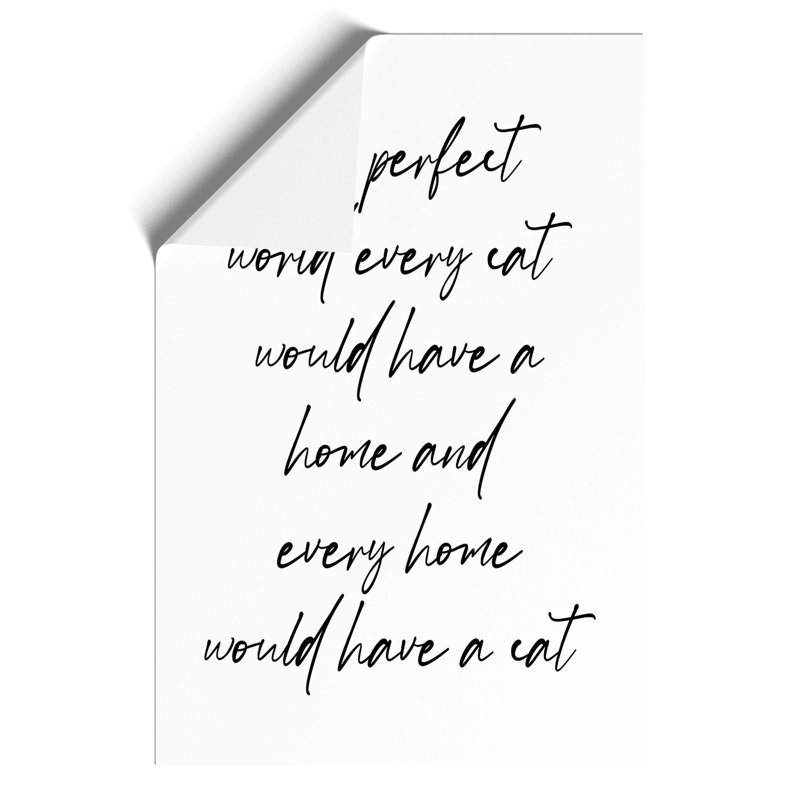 perfect
world every cat
would have a
home and
every home
would have a cat